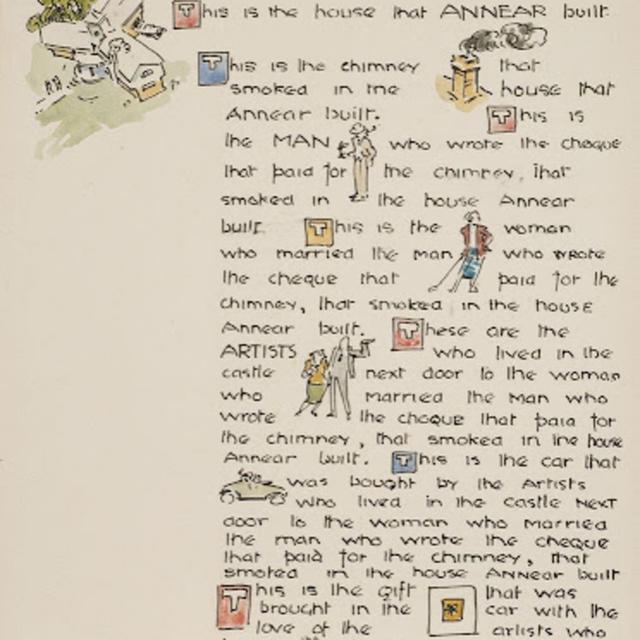 This is the house that ANNEAR built
This is the chimney that
smoked in the house that
Annear built. This is
the MAN who wrote the cheque
that paid for the chimney, that
smoked in the house Annear
built. This is the woman
who married the man who wrote
the cheque that paid for the
chimney, that smoked in the house
Annear built. These are the
ARTISTS who lived in the
castle next door to the woman
who married the man who
wrote the cheque that paid for
the chimney, that smoked in the house
Annear built. This is the car that
was bought by the Artists
who lived in the castle next
door to the woman who married
the man who wrote the cheque
that paid for the chimney, that
smoked in the house Annear built
This is the gift that was
brought in the car with the
love of the artists who